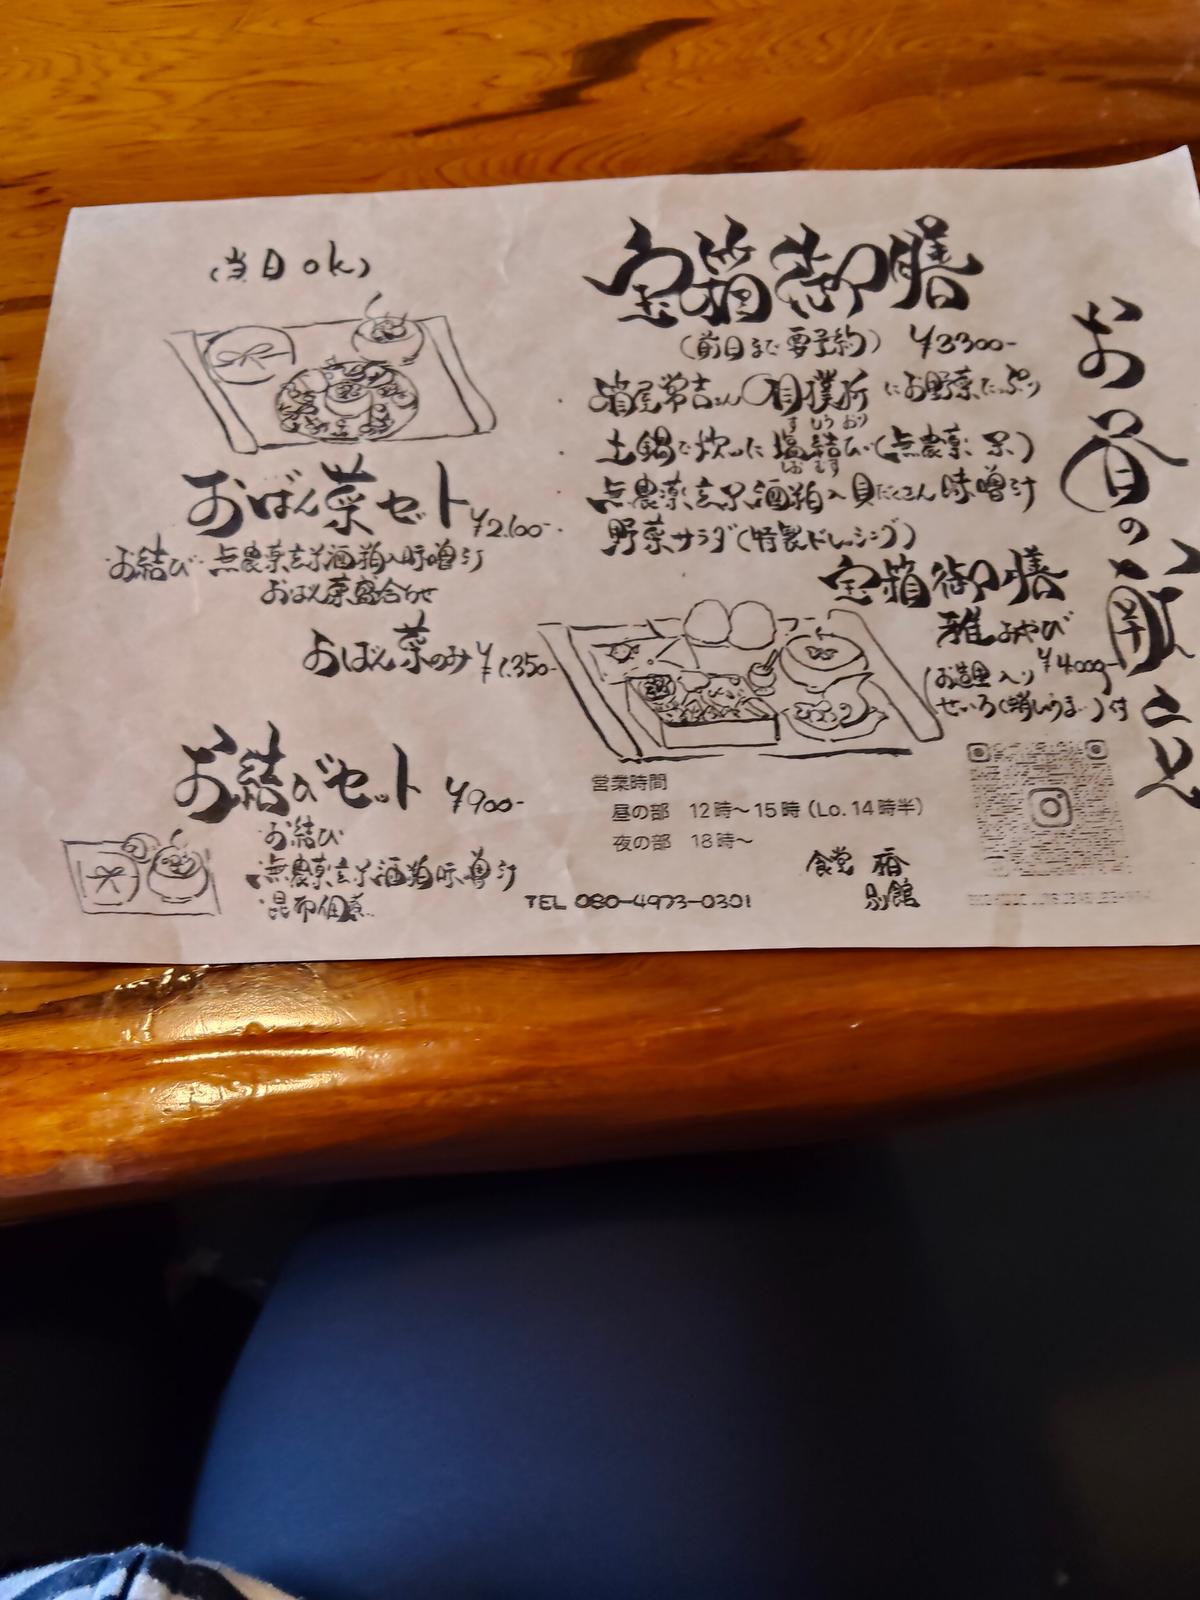 お昼の献立
宝箱御膳
(前日まで要予約) ¥3300-
・指尾常吉さんの相撲折にお野菜たっぷり
すもう おり
・土鍋で炊いた塩結び(無農薬 米)
しお むす
無農薬玄米酒粕入貝だくさん味噌汁
・野菜サラダ(特製ドレッシング)
宝箱御膳
雅みやび
¥4000-
(お造里入り
せいろ( )付
(当日ok)
おばん菜セット ¥2.100-
お結び 無農薬玄米酒粕入味噌汁
おばん菜盛合わせ
おばん菜のみ ¥1.350-
お結びセット ¥900-
お結び
無農薬玄米酒粕味噌汁
昆布佃煮
営業時間
昼の部 12時〜15時 (Lo. 14時半)
夜の部 18時〜
食堂
別館
TEL 080-4973-0301